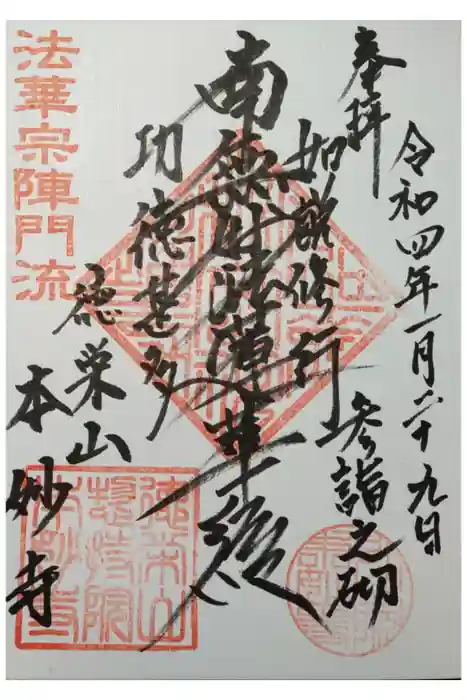 奉拝
令和四年一月二十九日
参詣之砌
如説修行
南無妙法蓮華経
功徳甚多
徳栄山
本妙寺
法華宗陣門流
徳栄山
惣持院
本妙寺